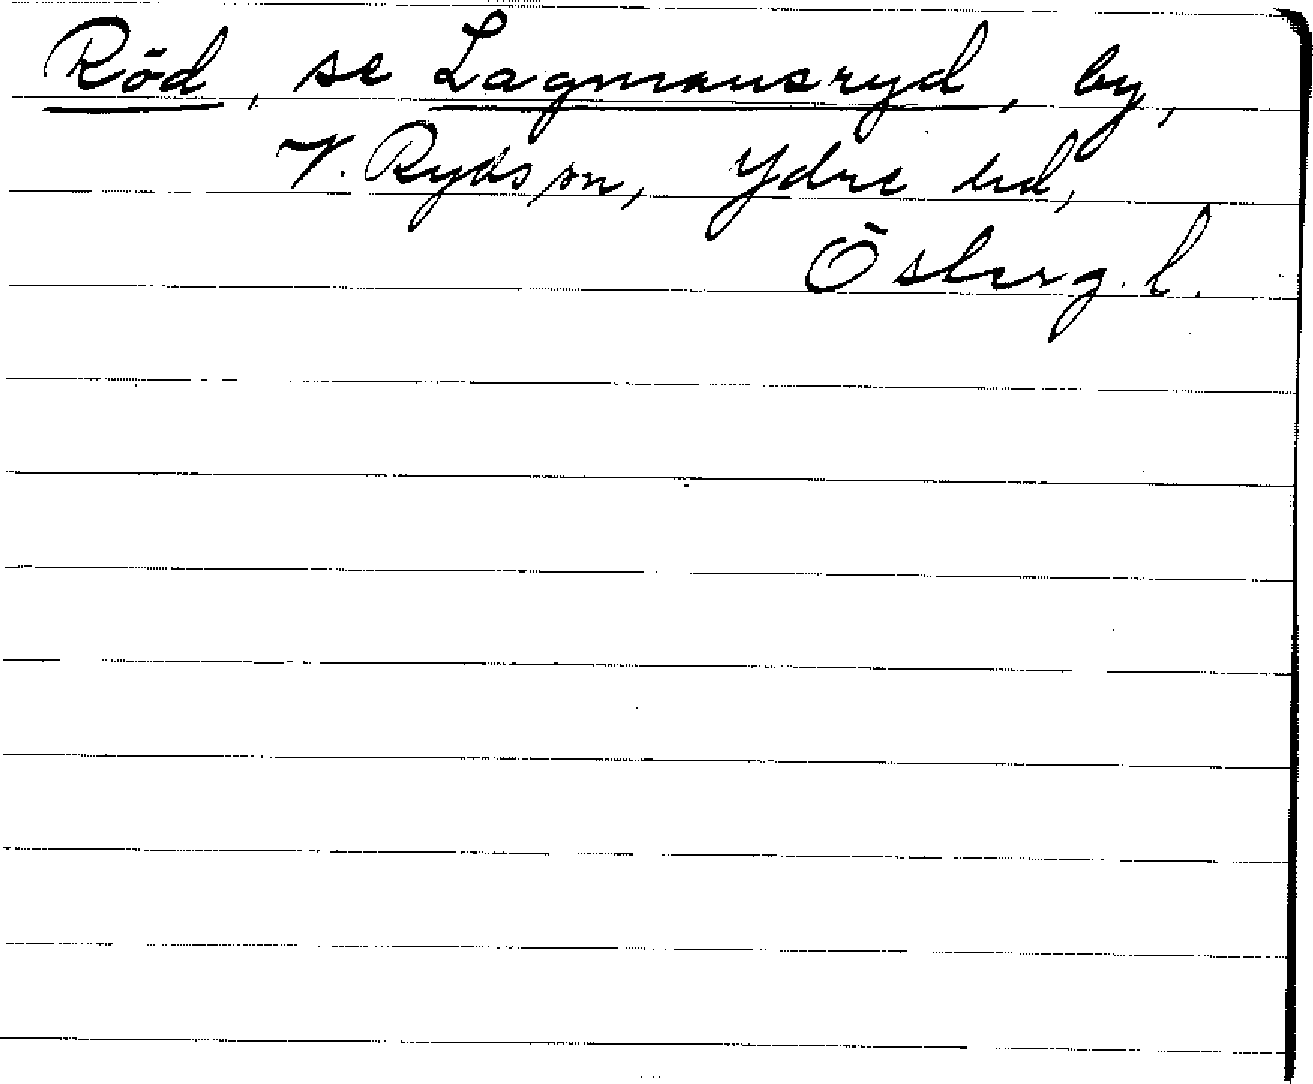 Röd, se Lagmansryd, by,
V. Ryds sn, Ydre hd,
Österg. l.